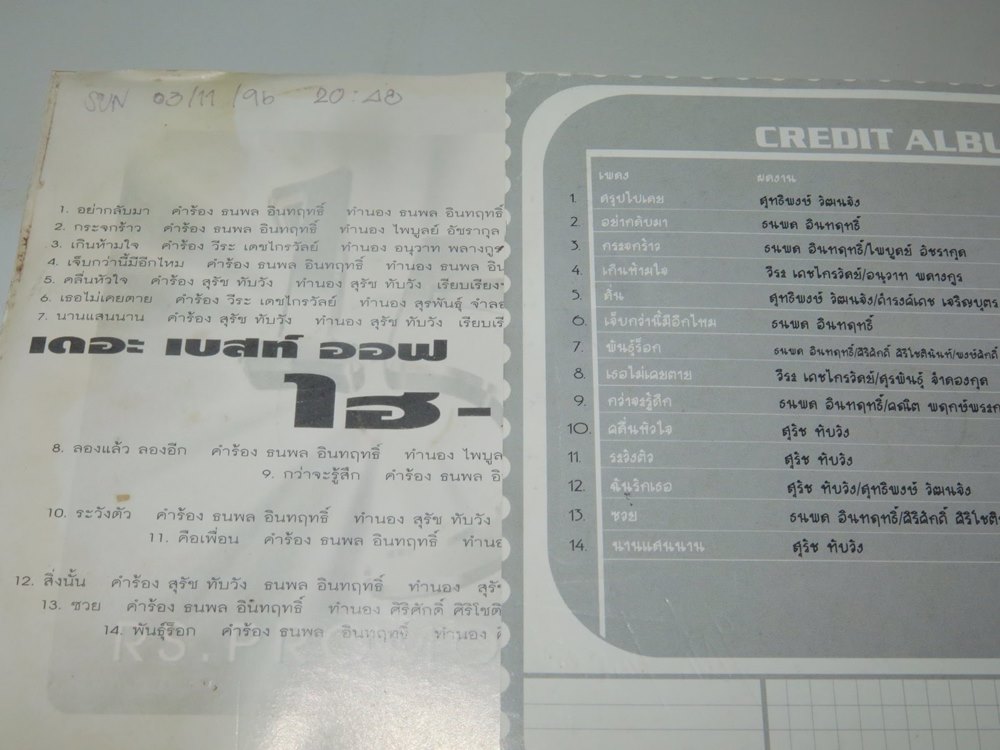 SUN 03/11/96 20:48
1. อย่ากลับมา คำร้อง ธนพล อินทฤทธิ์ ทำนอง ธนพล อินทฤทธิ์
2. กระจกร้าว คำร้อง ธนพล อินทฤทธิ์ ทำนอง ไพบูลย์ อัชรากุล
3. เกินห้ามใจ คำร้อง วีระ เดชไกรวัลย์ ทำนอง อนุวาท พลางกูร
4. เจ็บกว่านี้มีอีกไหม คำร้อง ธนพล อินทฤทธิ์ ทำนอง ธนพล อิน
5. คลื่นหัวใจ คำร้อง สุรัช ทับวัง ทำนอง สุรัช ทับวัง เรียบเรียง
6. เธอไม่เคยตาย คำร้อง วีระ เดชไกรวัลย์ ทำนอง สุรพันธุ์ จำลอ
7. นานแสนนาน คำร้อง สุรัช ทับวัง ทำนอง สุรัช ทับวัง เรียบเรี
เดอะ เบสท์ ออฟ
ไฮ -
8. ลองแล้ว ลองอีก คำร้อง ธนพล อินทฤทธิ์ ทำนอง ไพบูล
9. กว่าจะรู้สึก คำร้อง ธนพล อิ
10. ระวังตัว คำร้อง ธนพล อินทฤทธิ์ ทำนอง สุรัช ทับวัง
11. คือเพื่อน คำร้อง ธนพล อินทฤทธิ์ ทำนอ
12. สิ่งนั้น คำร้อง สุรัช ทับวัง ธนพล อินทฤทธิ์ ทำนอง สุรั
13. ซวย คำร้อง ธนพล อินทฤทธิ์ ทำนอง ศิริศักดิ์ ศิริโชติ
14. พันธุ์ร็อก คำร้อง ธนพล อินทฤทธิ์ ทำนอง ศิ
RS.PRO
CREDIT ALBU
เพลง ผลงาน
1. สรุปไปเลย สุทธิพงษ์ วัฒนจัง
2. อย่ากลับมา ธนพล อินทฤทธิ์
3. กระจกร้าว ธนพล อินทฤทธิ์/ไพบูลย์ อัชรากุล
4. เกินห้ามใจ วีระ เดชไกรวัลย์/อนุวาท พลางกูร
5. ดิ้น สุทธิพงษ์ วัฒนจัง/ดำรงค์เดช เจริญบุตร
6. เจ็บกว่านี้มีอีกไหม ธนพล อินทฤทธิ์
7. พันธุ์ร็อก ธนพล อินทฤทธิ์/ศิริศักดิ์ ศิริโชตินันท์/พงษ์ศักดิ์
8. เธอไม่เคยตาย วีระ เดชไกรวัลย์/สุรพันธุ์ จำลองกุล
9. กว่าจะรู้สึก ธนพล อินทฤทธิ์/คณิต พฤกษ์พระก
10. คลื่นหัวใจ สุรัช ทับวัง
11. ระวังตัว สุรัช ทับวัง
12. ฉันรักเธอ สุรัช ทับวัง/สุทธิพงษ์ วัฒนจัง
13. ซวย ธนพล อินทฤทธิ์/ศิริศักดิ์ ศิริโชติ
14. นานแสนนาน สุรัช ทับวัง